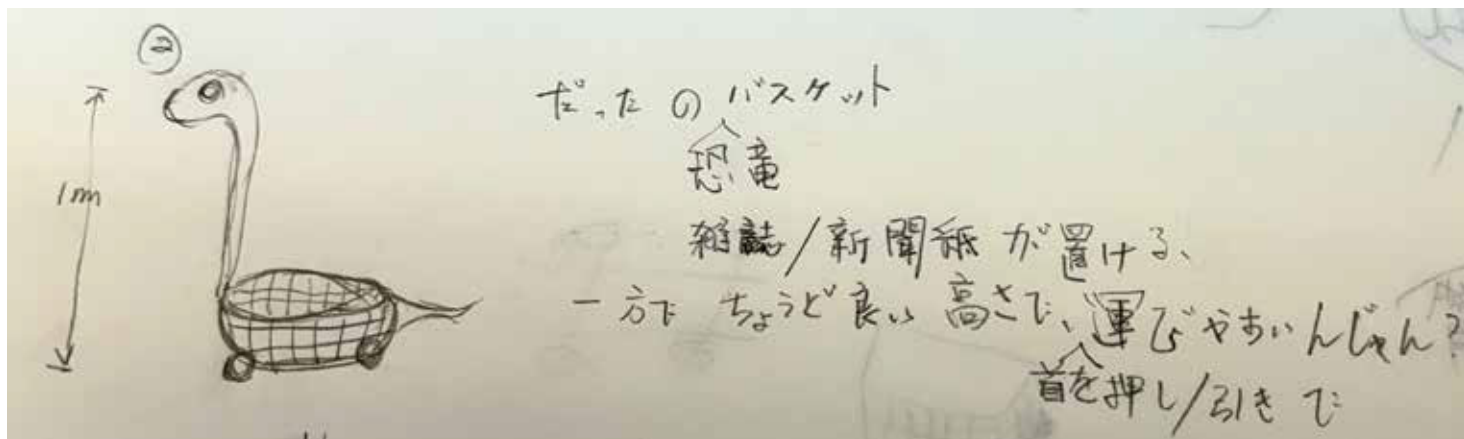 ②
1m
だったのバスケット
恐竜
雑誌/新聞紙が置ける、
一方で ちょうど良い高さで、運びやすいんじゃん?
首を押し/引きで